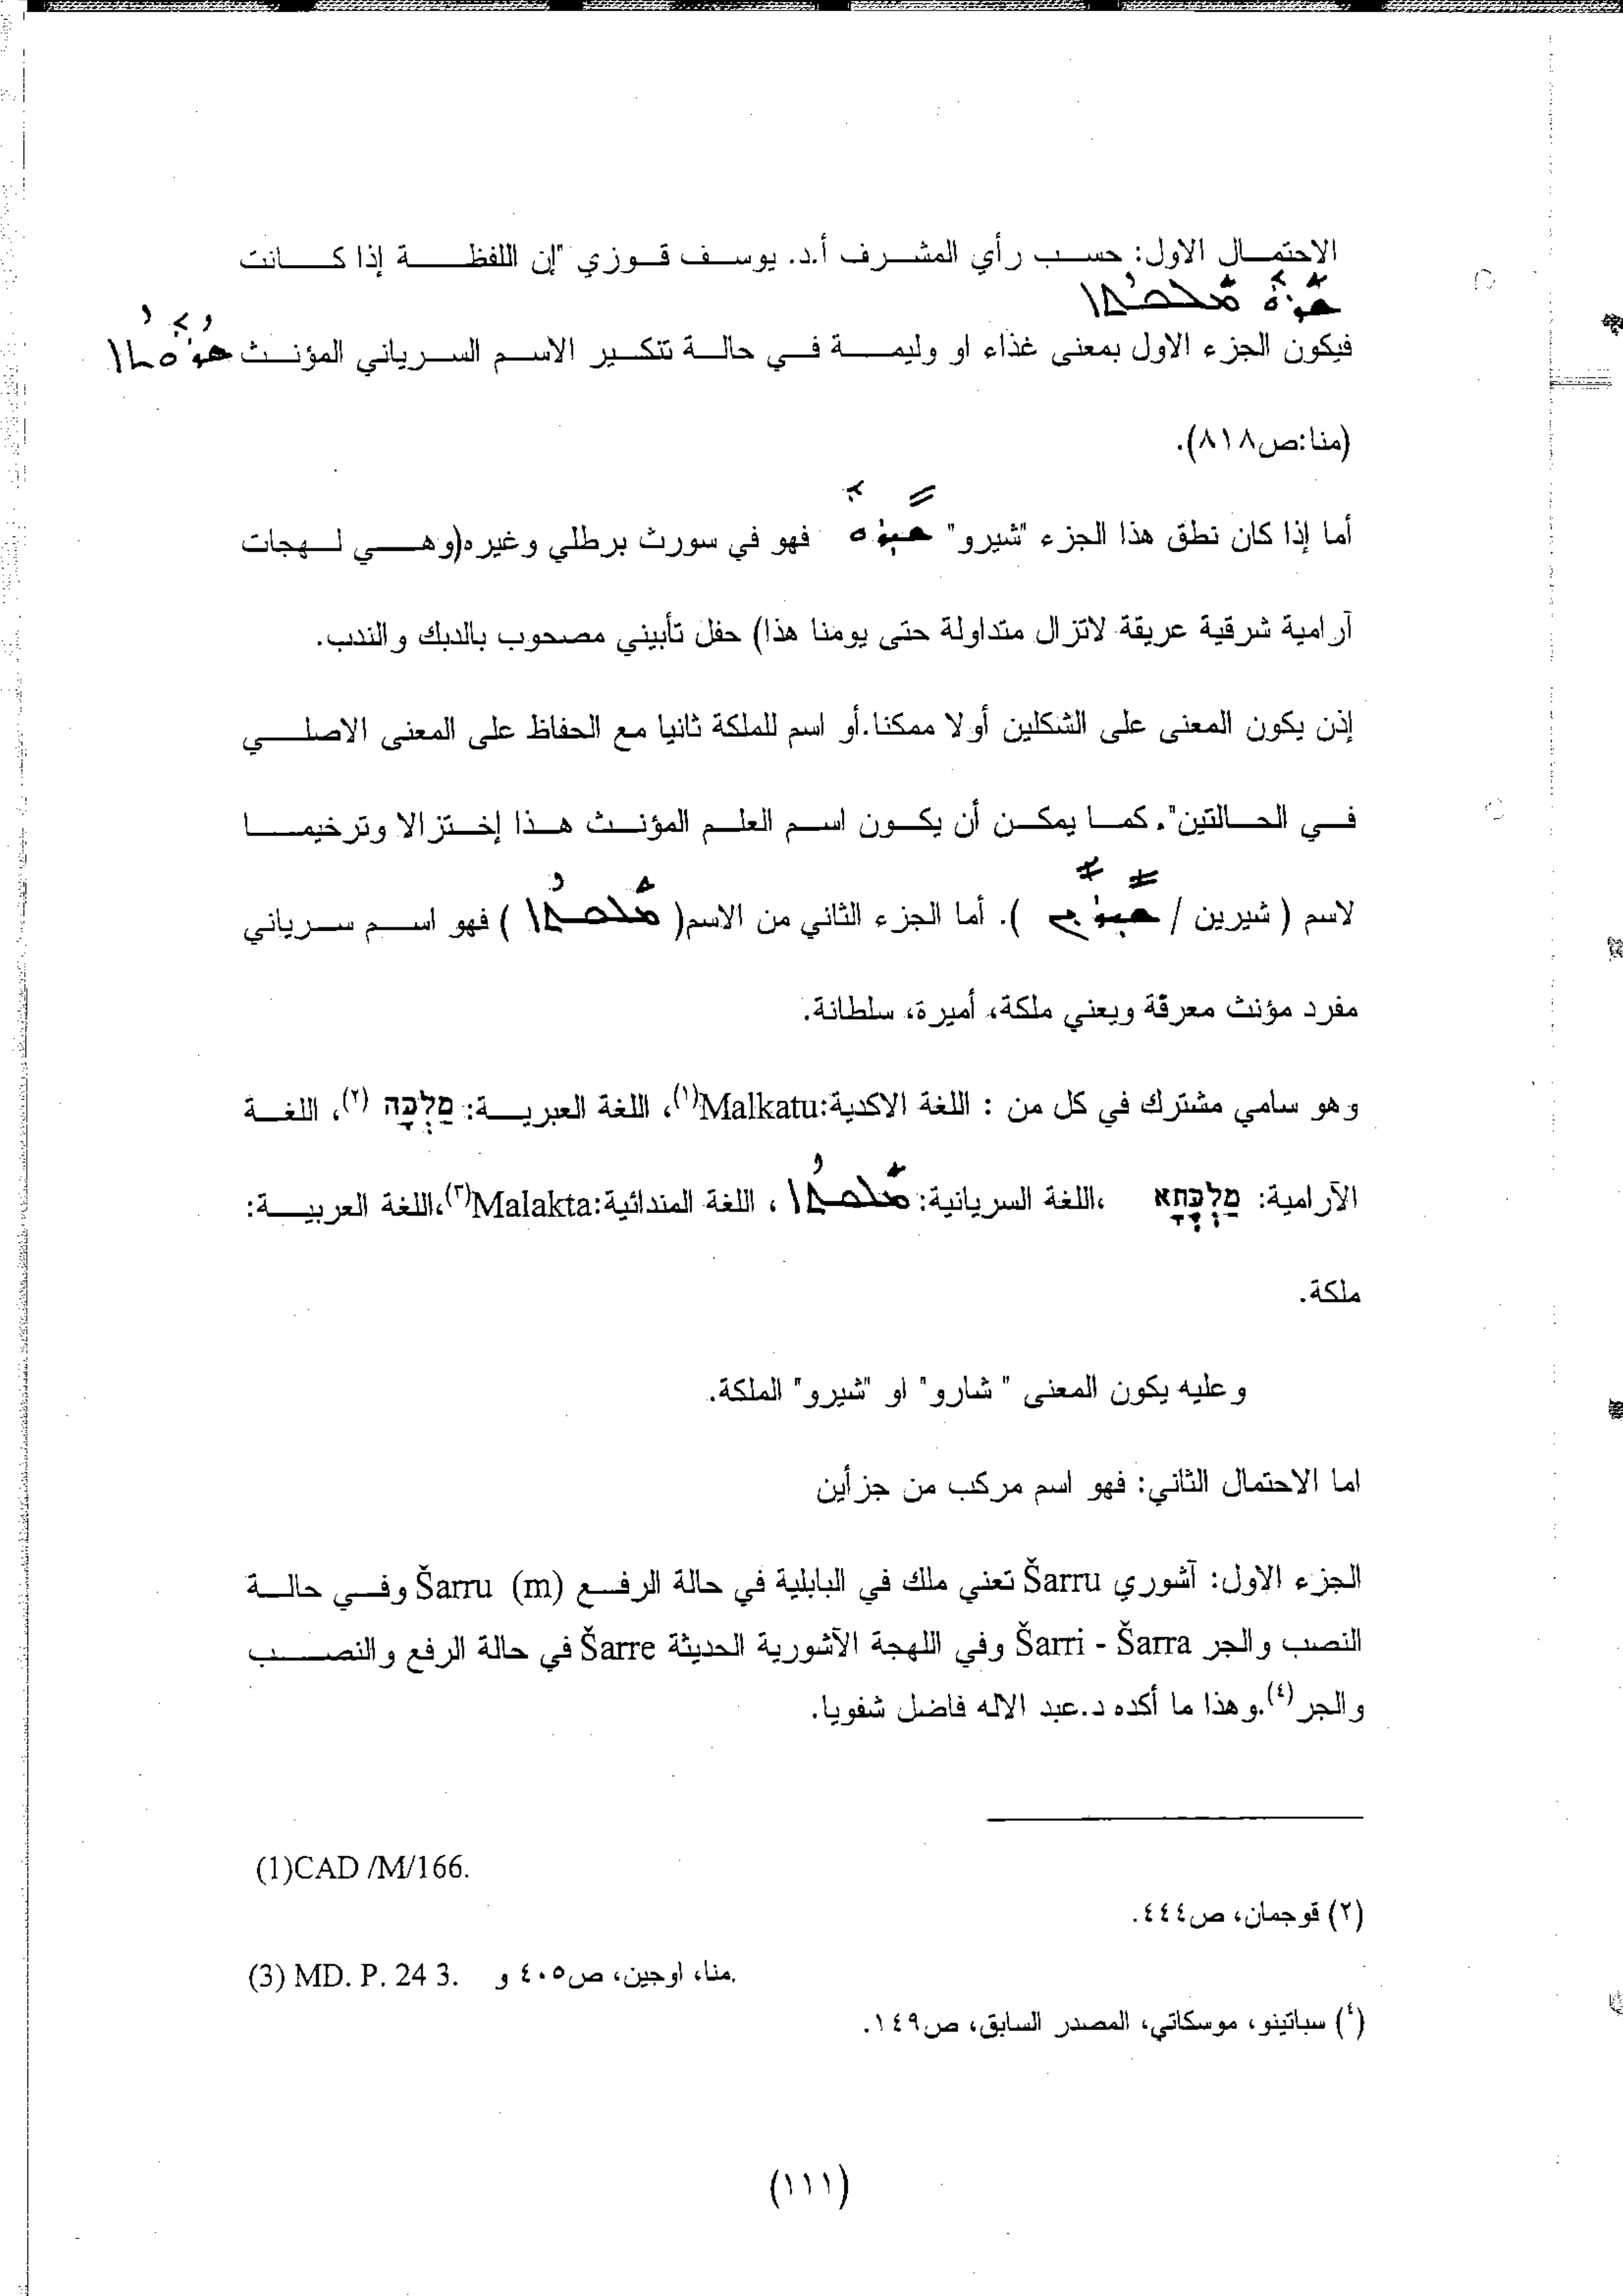 الاحتمال الاول: حسب رأي المشرف أ.د. يوسف قوزي "إن اللفظة إذا كانت
ܡܠܟܬܐ
فيكون الجزء الاول بمعنى غذاء او وليمة في حالة تنكير الاسم السرياني المؤنث
(منا:ص٨١٨).
أما إذا كان نطق هذا الجزء "شيرو" ܫܝܪܘ فهو في سورث برطلي وغيره(وهي لهجات
آرامية شرقية عريقة لاتزال متداولة حتى يومنا هذا) حفل تأبيني مصحوب بالدبك والندب.
إذن يكون المعنى على الشكلين أولا ممكنا.أو اسم للملكة ثانيا مع الحفاظ على المعنى الاصلي
في الحالتين". كما يمكن أن يكون اسم العلم المؤنث هذا إختزالا وترخيما
لاسم ( شيرين / ܫܝܪܝܢ ). أما الجزء الثاني من الاسم( ܡܠܟܬܐ ) فهو اسم سرياني
مفرد مؤنث معرقة ويعني ملكة، أميرة، سلطانة.
وهو سامي مشترك في كل من : اللغة الاكدية:Malkatu(١)، اللغة العبرية: מַלְכָּה (٢)، اللغة
الآرامية: מַלְכְּתָא ،اللغة السريانية: ܡܠܟܬܐ ، اللغة المندائية:Malakta(٣)،اللغة العربية:
ملكة.
وعليه يكون المعنى " شارو" او "شيرو" الملكة.
اما الاحتمال الثاني: فهو اسم مركب من جزأين
الجزء الاول: آشوري Šarru تعني ملك في البابلية في حالة الرفع Šarru (m) وفي حالة
النصب والجر Šarri - Šarra وفي اللهجة الآشورية الحديثة Šarre في حالة الرفع والنصب
والجر (٤).وهذا ما أكده د.عبد الاله فاضل شفويا.
(1)CAD /M/166.
(٢) قوجمان، ص٤٤٤.
(3) MD. P. 24 3. منا، اوجين، ص٤٠٥ و.
(٤) سباتينو، موسكاتي، المصدر السابق، ص١٤٩.
(١١١)